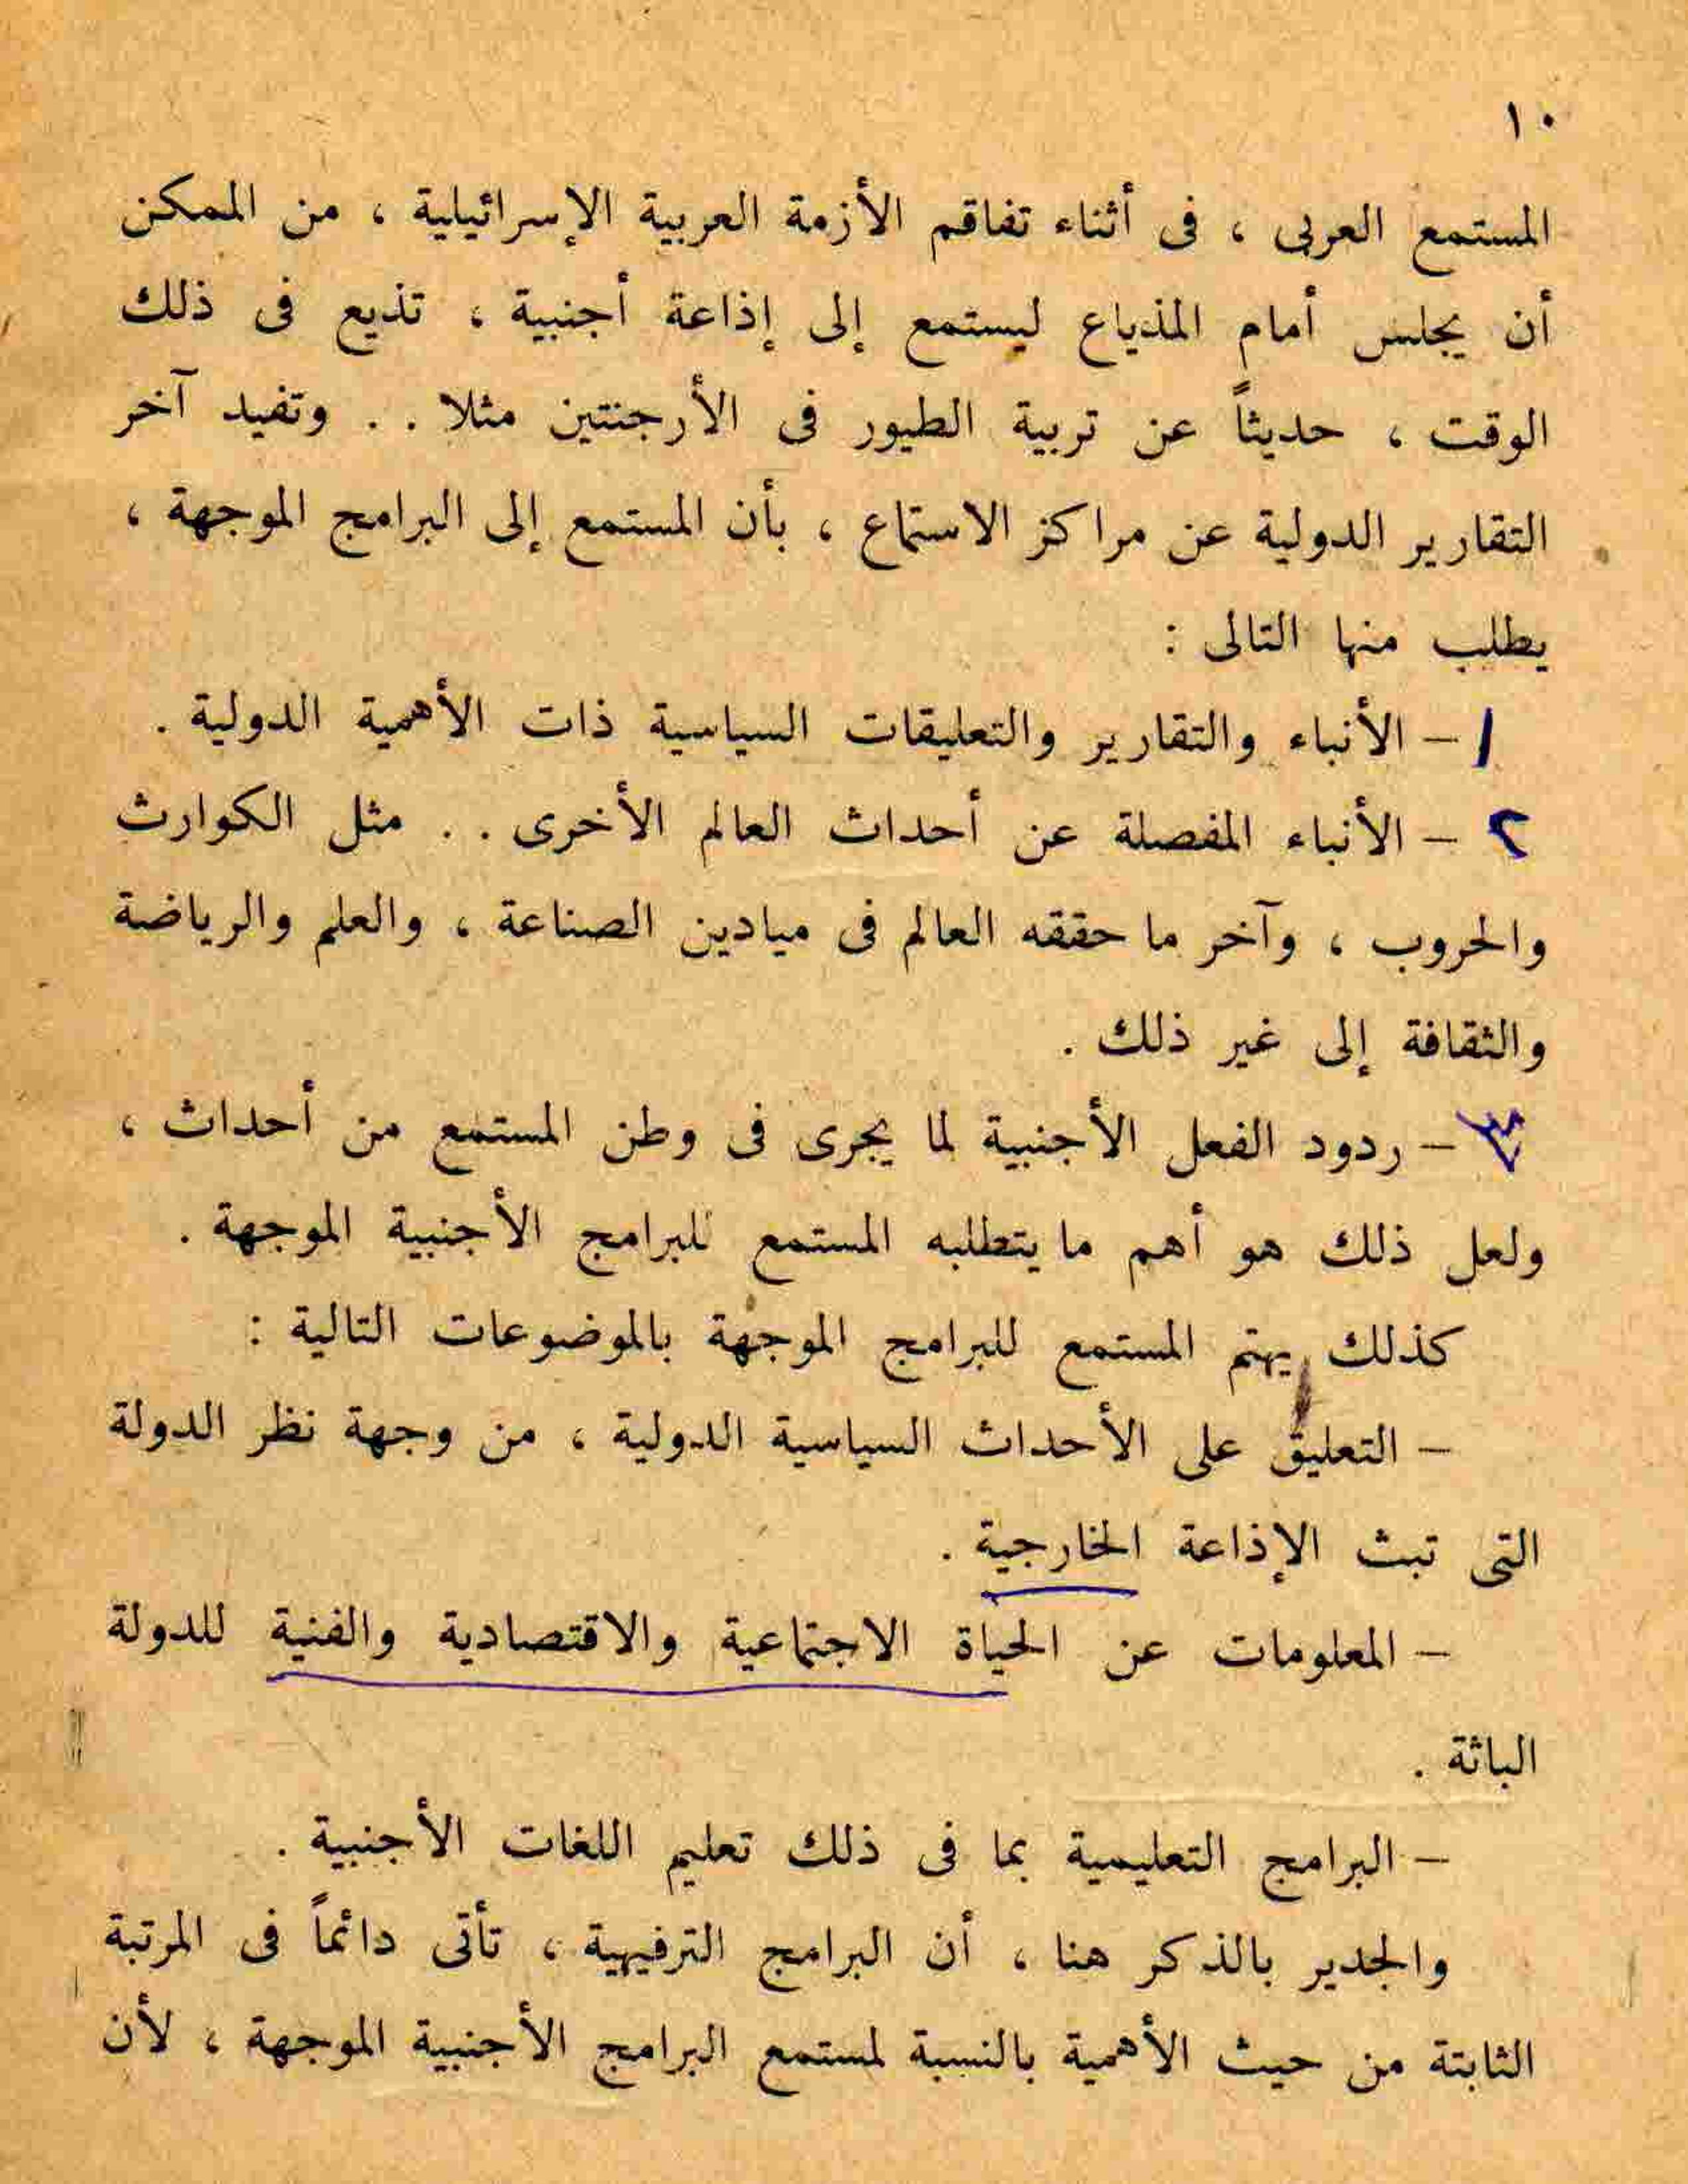 ١٠
المستمع العربى ، فى أثناء تفاقم الأزمة العربية الإسرائيلية ، من الممكن
أن يجلس أمام المذياع ليستمع إلى إذاعة أجنبية ، تذيع فى ذلك
الوقت ، حديثاً عن تربية الطيور فى الأرجنتين مثلا . . وتفيد آخر
التقارير الدولية عن مراكز الاستماع ، بأن المستمع إلى البرامج الموجهة ،
يطلب منها التالى :
١ – الأنباء والتقارير والتعليقات السياسية ذات الأهمية الدولية .
٢ – الأنباء المفصلة عن أحداث العالم الأخرى . . مثل الكوارث
والحروب ، وآخر ما حققه العالم فى ميادين الصناعة ، والعلم والرياضة
والثقافة إلى غير ذلك .
٣ – ردود الفعل الأجنبية لما يجرى فى وطن المستمع من أحداث ،
ولعل ذلك هو أهم ما يتطلبه المستمع للبرامج الأجنبية الموجهة .
كذلك يهتم المستمع للبرامج الموجهة بالموضوعات التالية :
– التعليق على الأحداث السياسية الدولية ، من وجهة نظر الدولة
التى تبث الإذاعة الخارجية .
– المعلومات عن الحياة الاجتماعية والاقتصادية والفنية للدولة
الباثة .
– البرامج التعليمية بما فى ذلك تعليم اللغات الأجنبية .
والجدير بالذكر هنا ، أن البرامج الترفيهية ، تأتى دائماً فى المرتبة
الثابتة من حيث الأهمية بالنسبة لمستمع البرامج الأجنبية الموجهة ، لأن